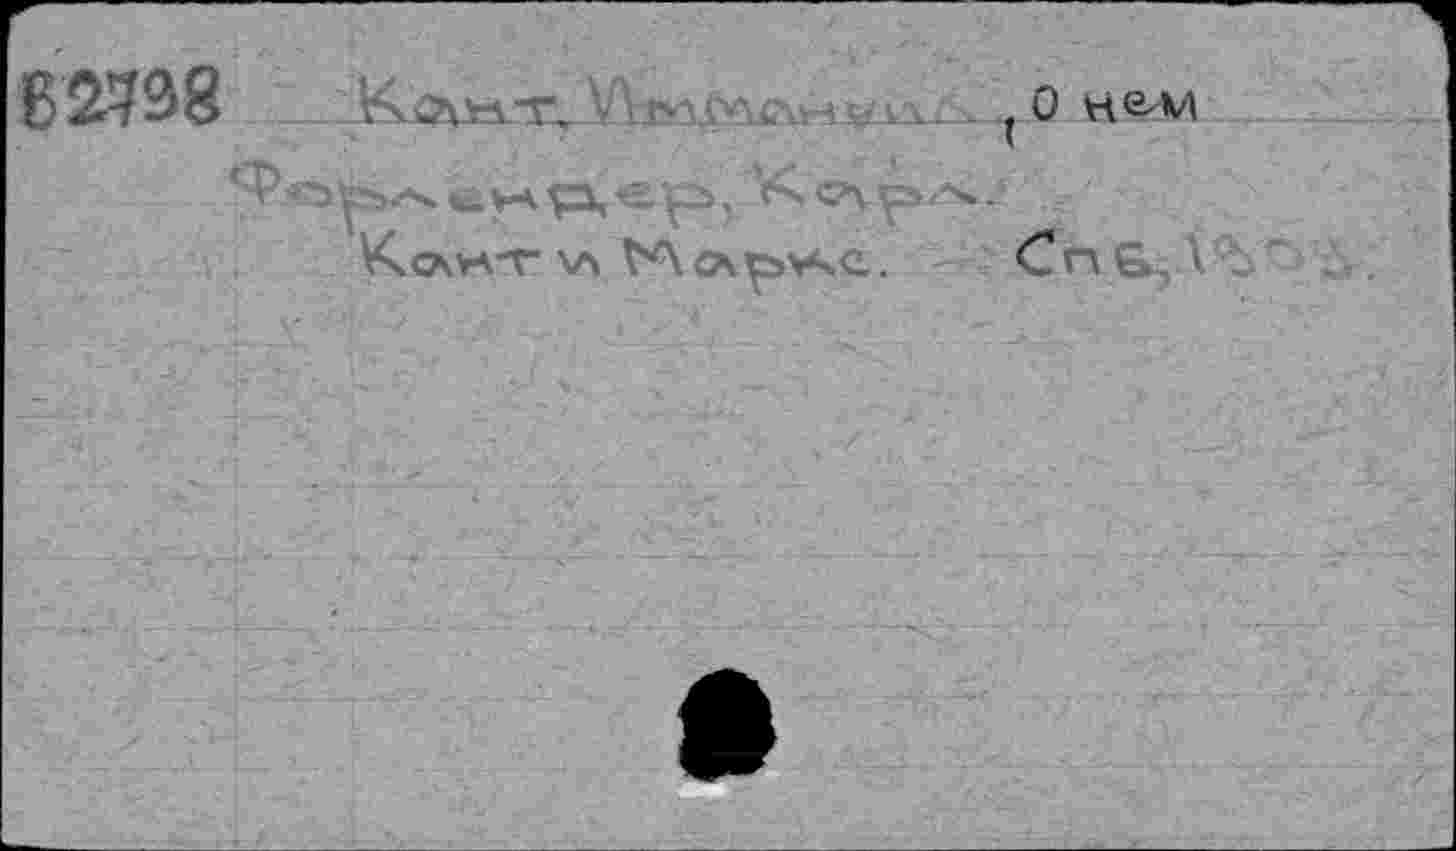 В2798 Кант, Иммануил, О нем
Форлендер, Карл.
Кант и Маркс. – Спб,